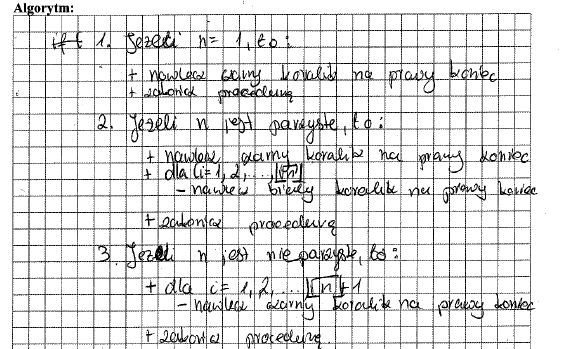 Algorytm:
1. Jeżeli n = 1, to:
+ nawlecz czarny koralik na prawy koniec
+ zakończ procedurę
2. Jeżeli n jest parzyste, to:
+ nawlecz czarny koralik na prawy koniec
+ dla i = 1, 2, ...
- nawlecz biały koralik na prawy koniec
+ zakończ procedurę
3. Jeżeli n jest nieparzyste, to:
+ dla i = 1, 2, ...
- nawlecz czarny koralik na prawy koniec
+ zakończ procedurę